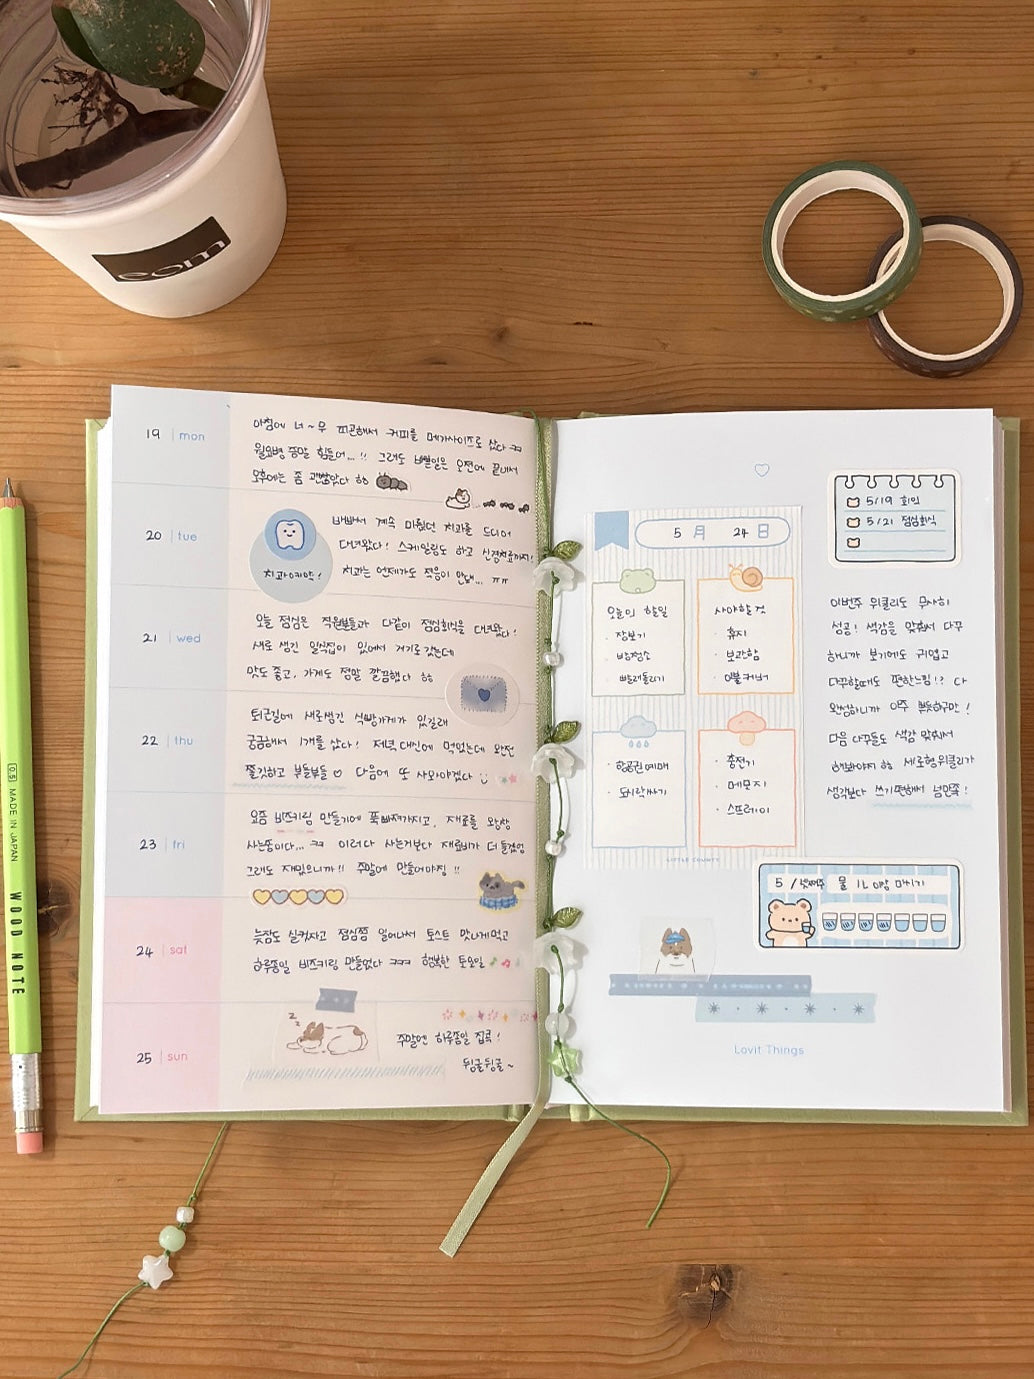 com
0.5 MADE IN JAPAN
WOOD NOTE
19 | mon
아침에 너~무 피곤해서 커피를 메가사이즈로 샀다 ㅋㅋ
월요병 정말 힘들어...!! 그래도 바쁜일은 오전에 끝내서
오후에는 좀 괜찮았다 ㅎㅎ
20 | tue
치과예약!
바빠서 계속 미뤘던 치과를 드디어
다녀왔다! 스케일링도 하고 신경치료까지!
치과는 언제가도 적응이 안돼... ㅠㅠ
21 | wed
오늘 점심은 직원분들과 다같이 점심회식을 다녀왔다!
새로 생긴 일식집이 있어서 거기로 갔는데
맛도 좋고, 가게도 정말 깔끔했다 ㅎㅎ
22 | thu
퇴근길에 새로생긴 식빵가게가 있길래
궁금해서 1개를 샀다! 저녁 대신에 먹었는데 완전
쫄깃하고 부들부들 ♡ 다음에 또 사와야겠다
23 | fri
요즘 비즈키링 만들기에 푹 빠져가지고, 재료를 왕창
사는중이다... ㅋㅋ 이러다 사는거보다 재료비가 더 들겠어
그래도 재밌으니까!! 주말에 만들어야징 !!
24 | sat
늦잠도 실컷자고 점심쯤 일어나서 토스트 맛나게 먹고
하루종일 비즈키링 만들었다 ㅋㅋㅋ 행복한 토요일
25 | sun
z z z
주말엔 하루종일 집콕!
뒹굴뒹굴~
5 月 24 日
오늘의 할일
· 장보기
· 방청소
· 빨래돌리기
사야할 것
· 휴지
· 보관함
· 이불커버
· 항공권예매
· 도시락싸기
· 충전기
· 메모지
· 스프레이
LITTLE COUNTY
5/19 회의
5/21 점심회식
이번주 위클리도 무사히
성공! 색감을 맞춰서 다꾸
하니까 보기에도 귀엽고
다꾸할때도 편한느낌!? 다
완성하니까 아주 뿌듯하구만!
다음 다꾸들도 색감 맞춰서
해봐야지 ㅎㅎ 세로형위클리가
생각보다 쓰기편해서 넘만족!
5 / 넷째주 물 1L 이상 마시기
Lovit Things